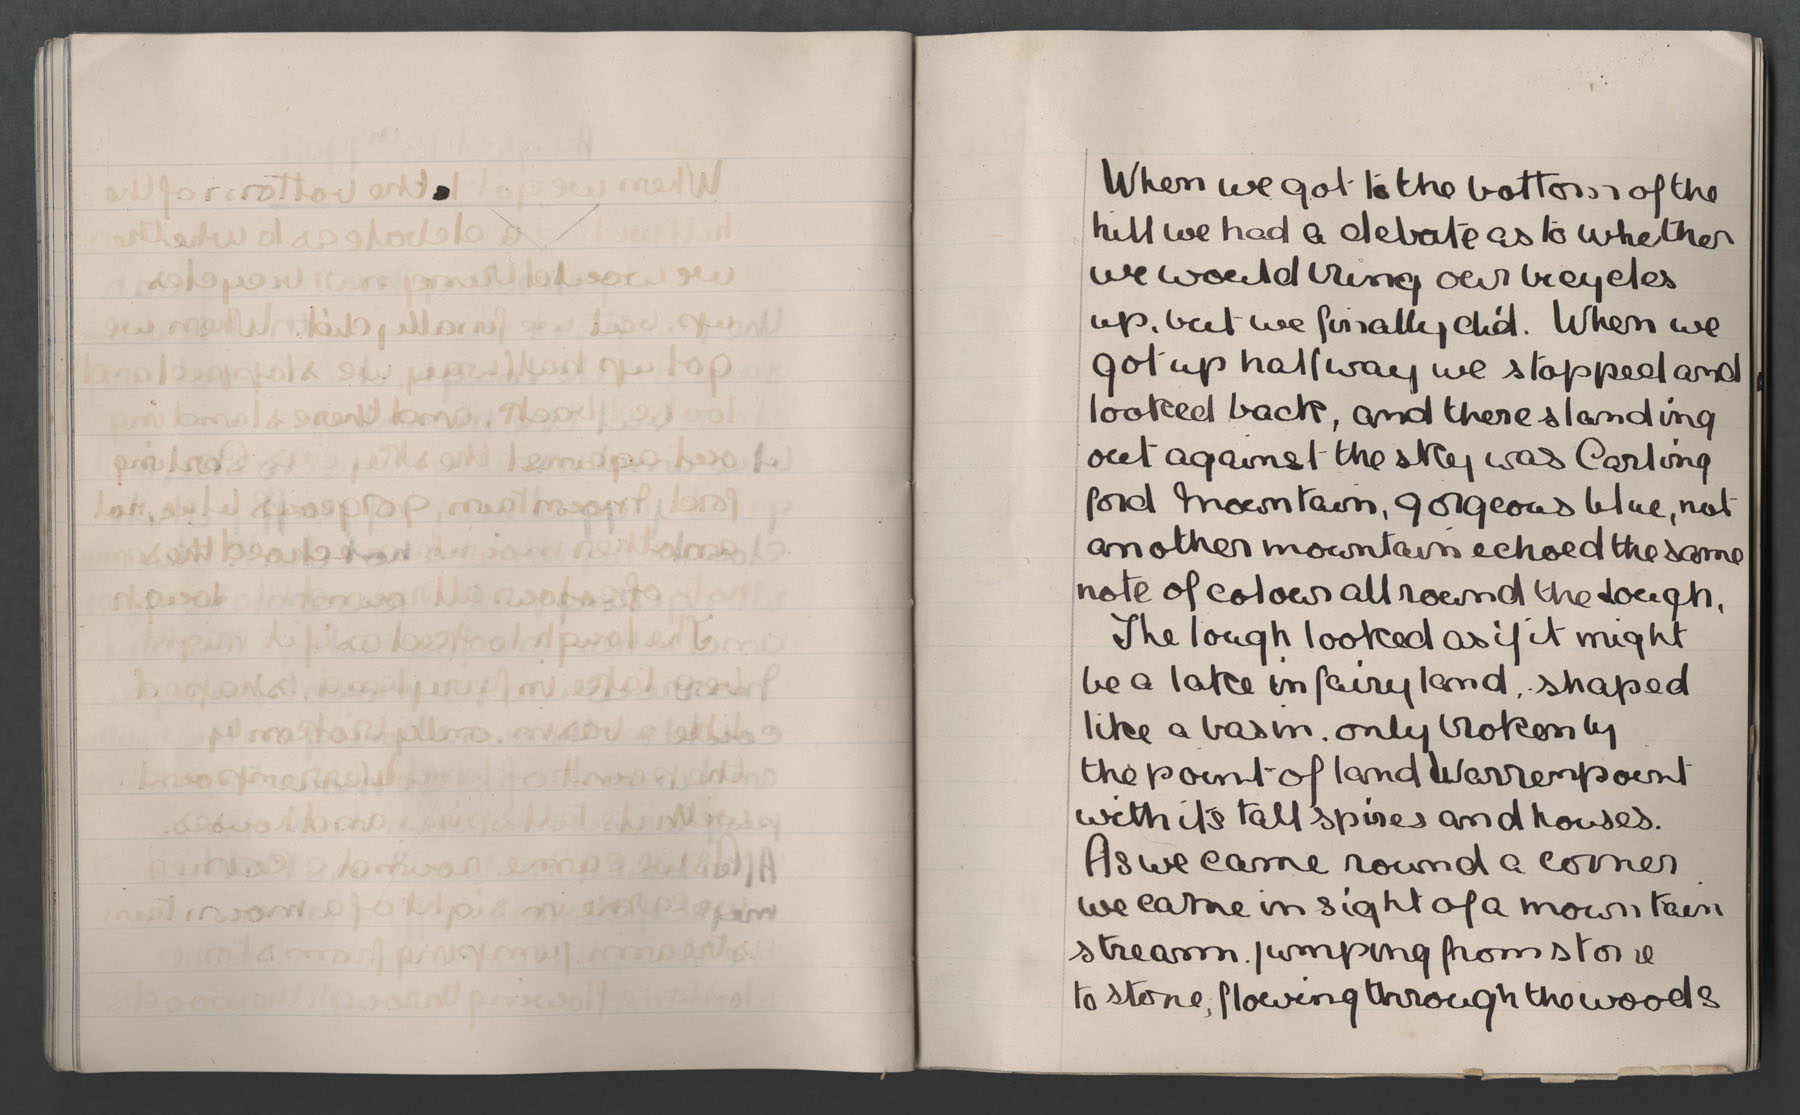 When we got to the bottom of the
hill we had a debate as to whether
we would bring our bicycles
up, but we finally did. When we
got up halfway we stopped and
looked back, and there standing
out against the sky was Carling
ford Mountain, gorgeous blue, not
another mountain echoed the same
note of colour all round the Lough.
The lough looked as if it might
be a lake in fairy land, shaped
like a basin. only broken by
the point of land Warrenpoint
with it's tall spires and houses.
As we came round a corner
we came in sight of a mountain
stream. jumping from stone
to stone, flowing through the woods